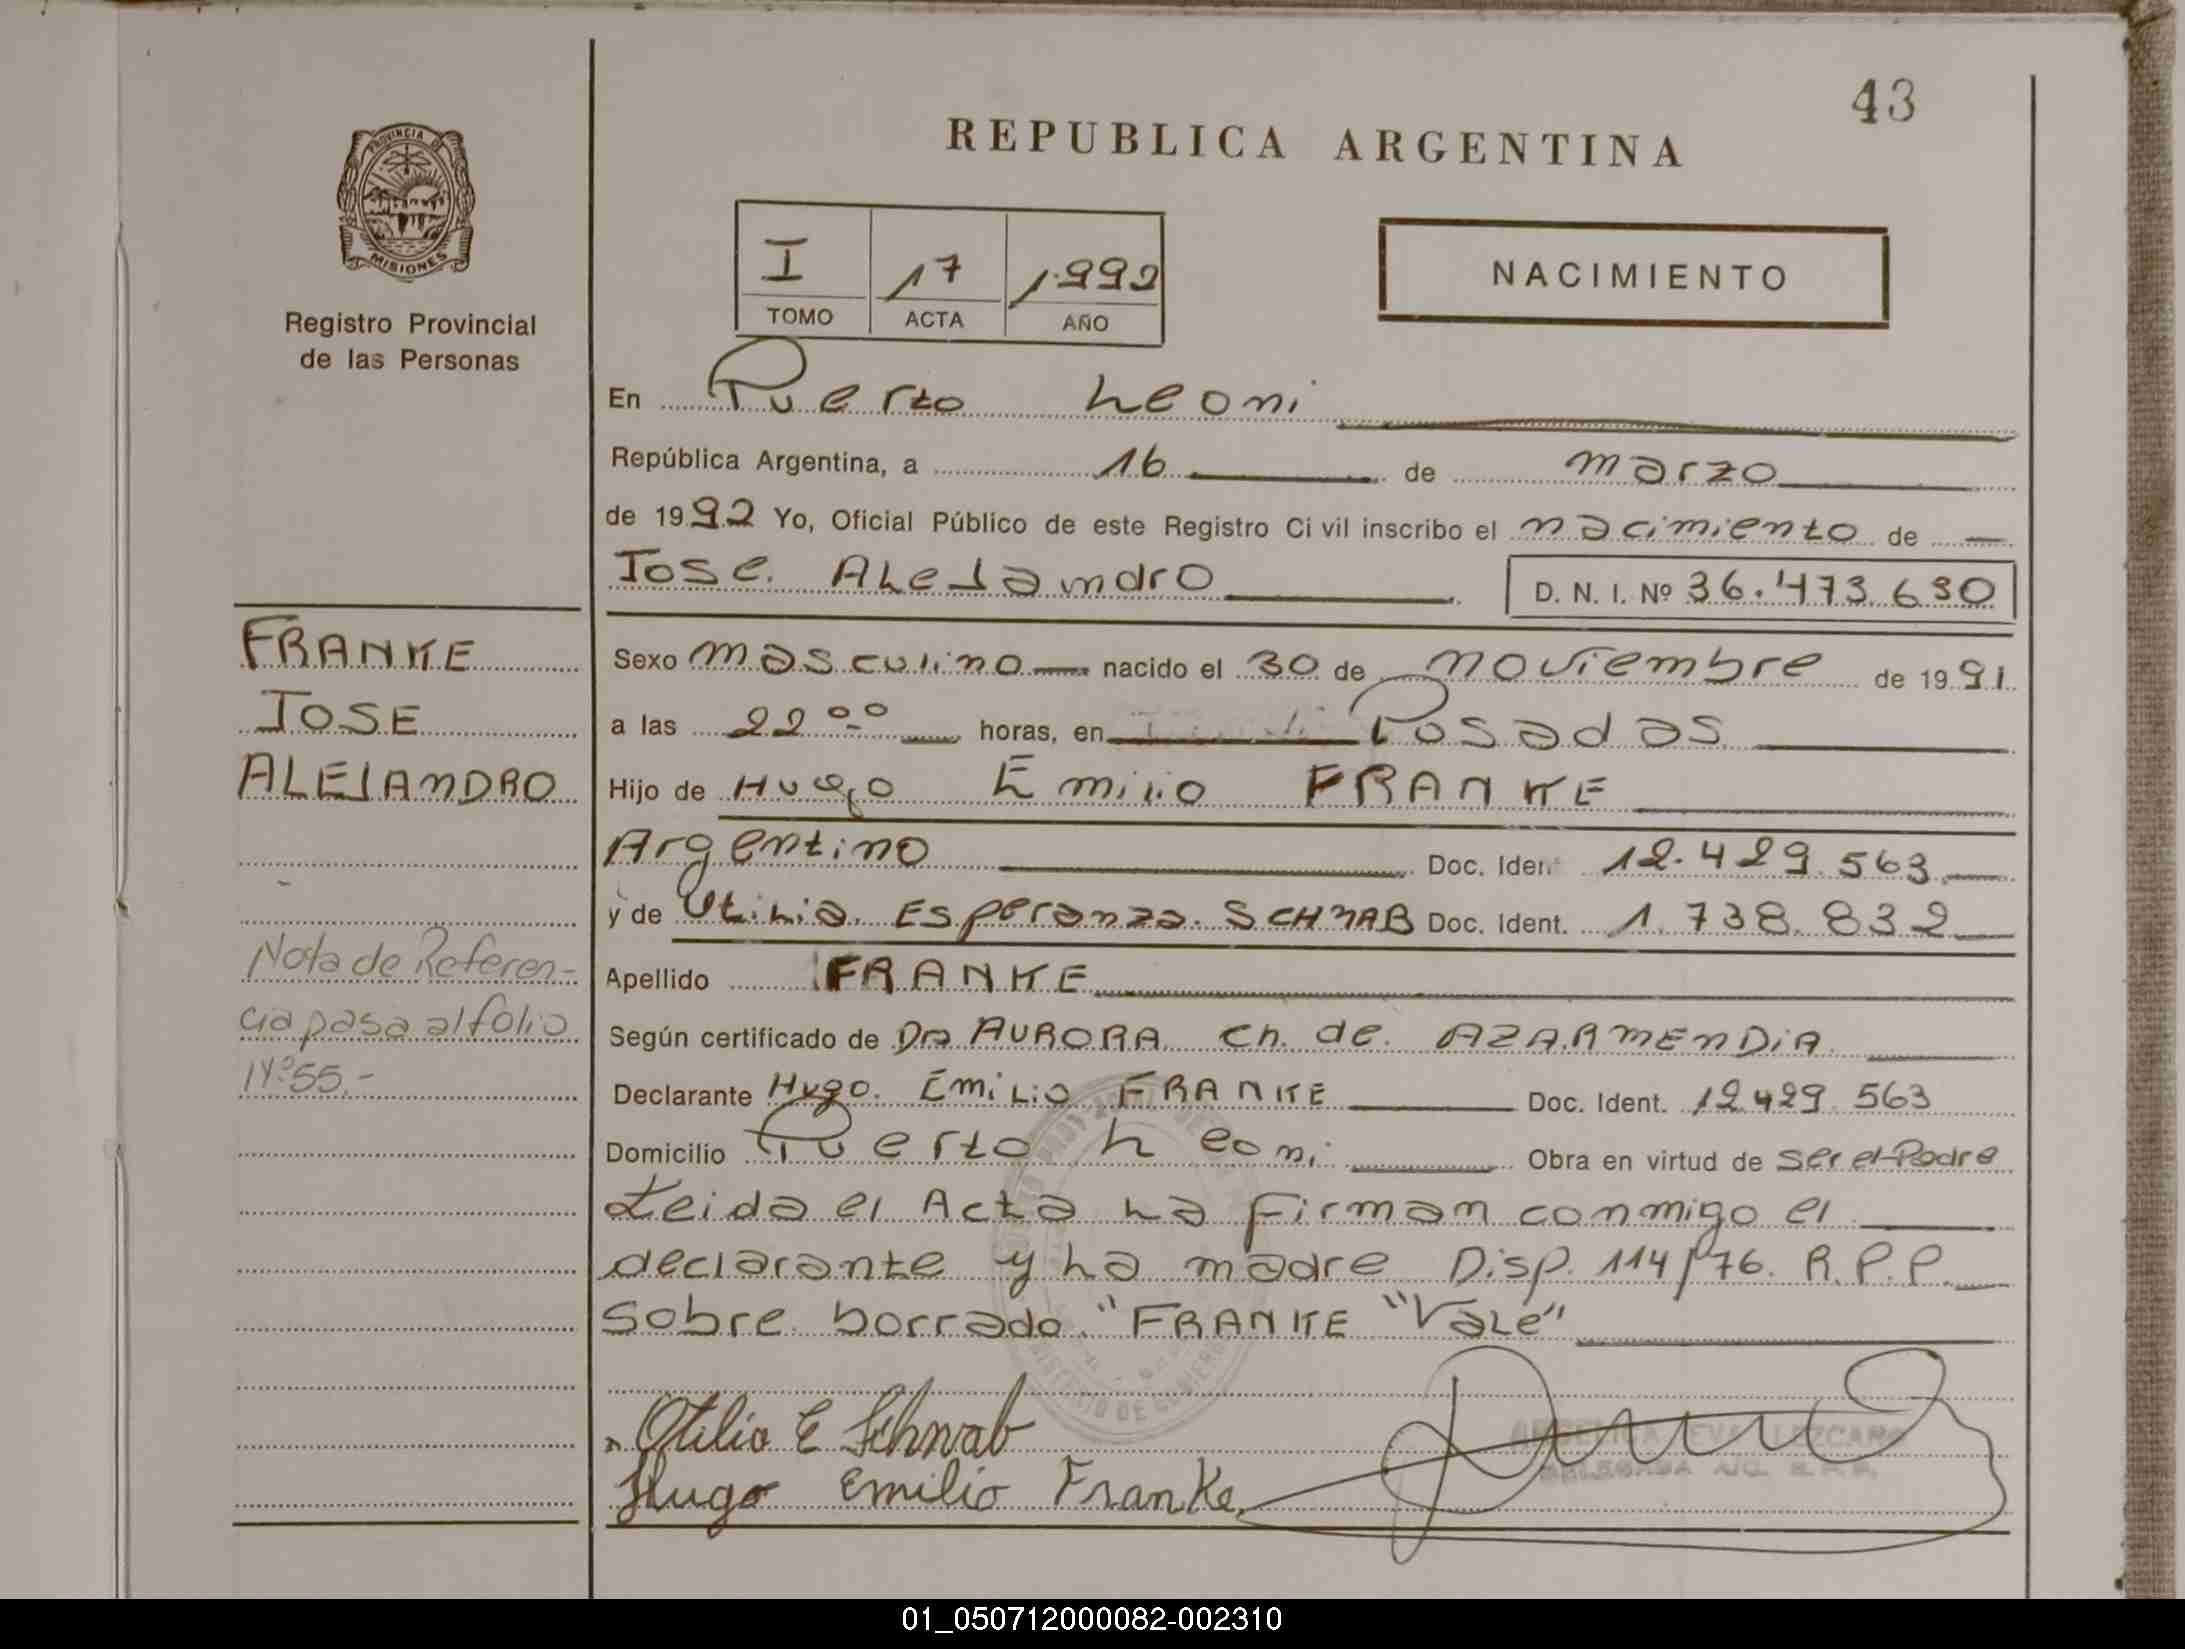 43
REPUBLICA ARGENTINA
PROVINCIA DE
MISIONES
Registro Provincial
de las Personas
I 17 1992
TOMO ACTA AÑO
NACIMIENTO
En Puerto Leoni
República Argentina, a 16 de marzo
de 1992 Yo, Oficial Público de este Registro Civil inscribo el nacimiento de
Jose Alejandro D. N. I. Nº 36.473.630
FRANKE
JOSE
ALEJANDRO
Nota de Referen-
cia pasa al folio
Nº 55.-
Sexo masculino nacido el 30 de noviembre de 1991
a las 22 00 horas, en Posadas
Hijo de Hugo Emilio FRANKE
Argentino Doc. Ident 12.429.563
y de Otilia Esperanza SCHNAB Doc. Ident. 1.738.832
Apellido FRANKE
Según certificado de Dra AURORA Ch. de AZARMENDIA
Declarante Hugo EMiLiO FRANKE Doc. Ident. 12 429 563
Domicilio Puerto Leoni Obra en virtud de ser el Padre
Leida el Acta La firman conmigo el
declarante y La madre Disp. 114/76. R.P.P.
Sobre borrado "FRANKE "Vale"
Otilia E Schnab
Hugo Emilio Franke
EVA LEZCANO
DELEGADA
01_050712000082-002310